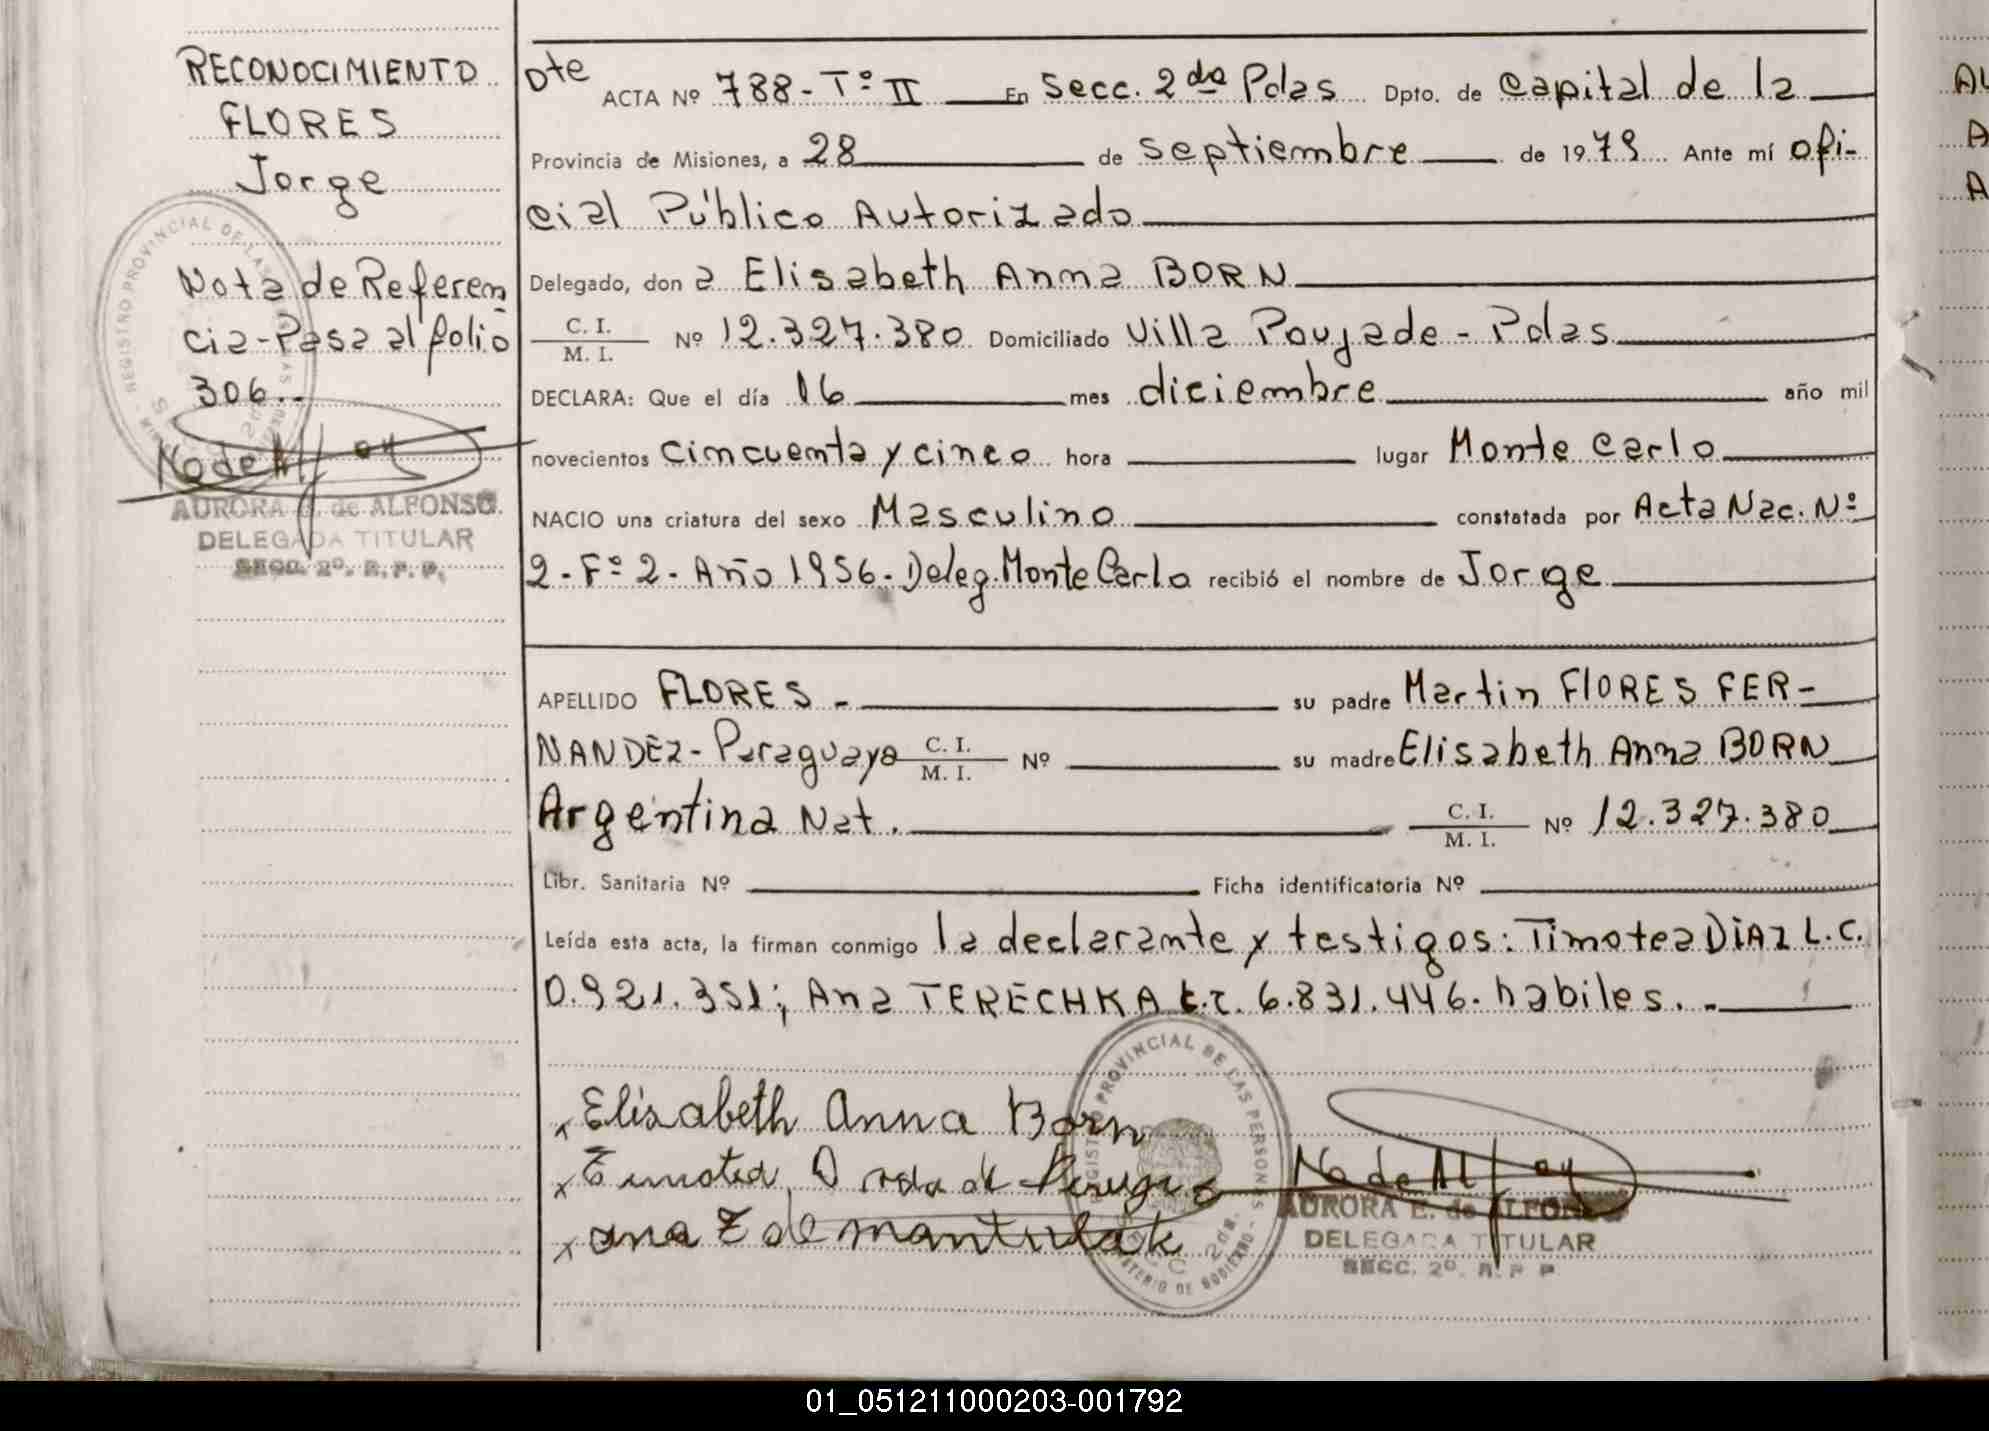 RECONOCIMIENTO
FLORES
Jorge
Nota de Referen
cia-Pasa al folio
306..
AURORA E. de ALFONSO
DELEGADA TITULAR
SECC. 2º. R. P. P.
Dte ACTA Nº 788-Tº II En Secc. 2da Pdas Dpto. de Capital de la
Provincia de Misiones, a 28 de septiembre de 1979 Ante mí ofi-
cial Público Autorizado
Delegado, don a Elisabeth Anna BORN
C. I. / M. I. Nº 12.327.380 Domiciliado Villa Poujade - Pdas
DECLARA: Que el día 16 mes diciembre año mil
novecientos cincuenta y cinco hora lugar Monte Carlo
NACIO una criatura del sexo Masculino constatada por Acta Nac. Nº
2-Fº 2-Año 1956-Deleg. Monte Carlo recibió el nombre de Jorge
APELLIDO FLORES - su padre Martin FlORES FER-
NANDEZ-Paraguaya C. I. / M. I. Nº su madre Elisabeth Anna BORN
Argentina Nat. C. I. / M. I. Nº 12.327.380
Libr. Sanitaria Nº Ficha identificatoria Nº
Leída esta acta, la firman conmigo la declarante y testigos: Timotea DiAZ L.C.
0.921.351; Ana TERECHKA L.C. 6.831.446. habiles. -
REGISTRO PROVINCIAL DE LAS PERSONAS
x Elisabeth Anna Born
x
x ana Z de mantulak
AURORA E. de ALFONSO
DELEGADA TITULAR
SECC. 2º. R. P. P.
01_051211000203-001792